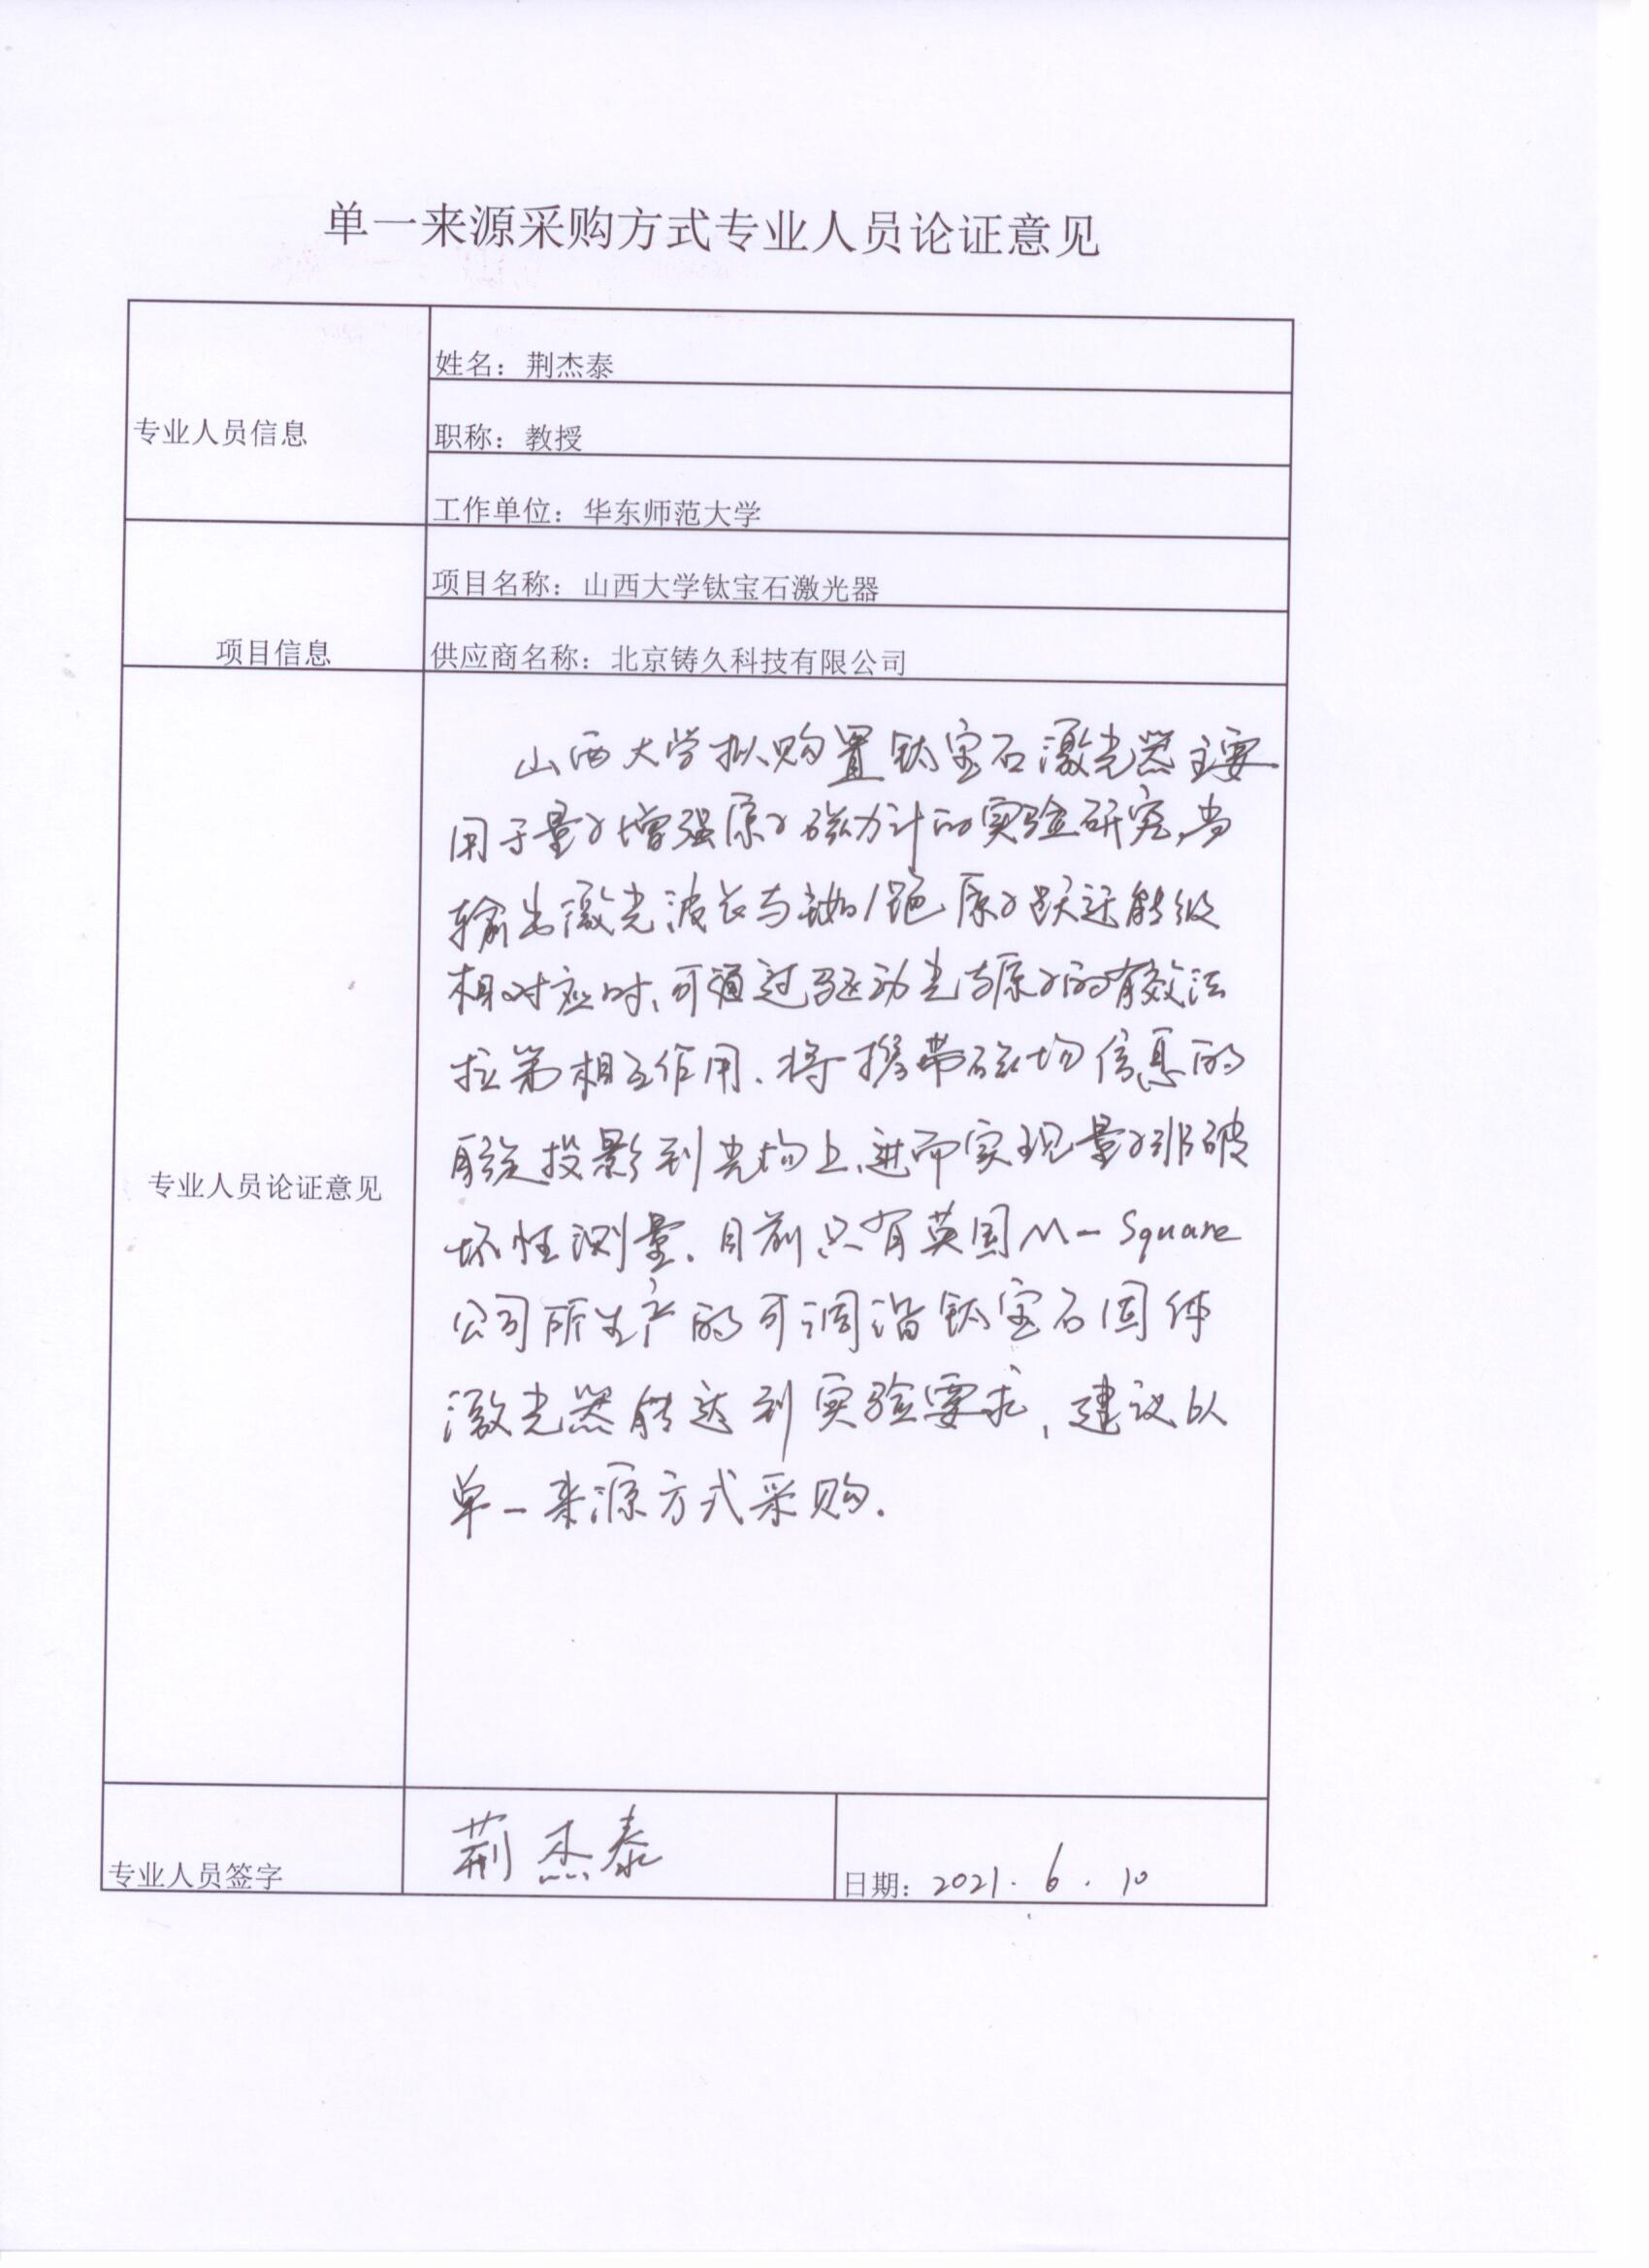 单一来源采购方式专业人员论证意见
专业人员信息
姓名：荆杰泰
职称：教授
工作单位：华东师范大学
项目信息
项目名称：山西大学钛宝石激光器
供应商名称：北京铸久科技有限公司
专业人员论证意见
山西大学拟购置钛宝石激光器主要
用于量子增强原子磁力计的实验研究，当
输出激光波长与铷/铯原子跃迁能级
相对应时、可通过驱动光与原子的有效法
拉第相互作用、将携带磁场信息的
自旋投影到光场上、进而实现量子非破
坏性测量。目前只有英国M-Square
公司所生产的可调谐钛宝石固体
激光器能达到实验要求，建议以
单一来源方式采购.
专业人员签字
荆杰泰
日期：2021.6.10